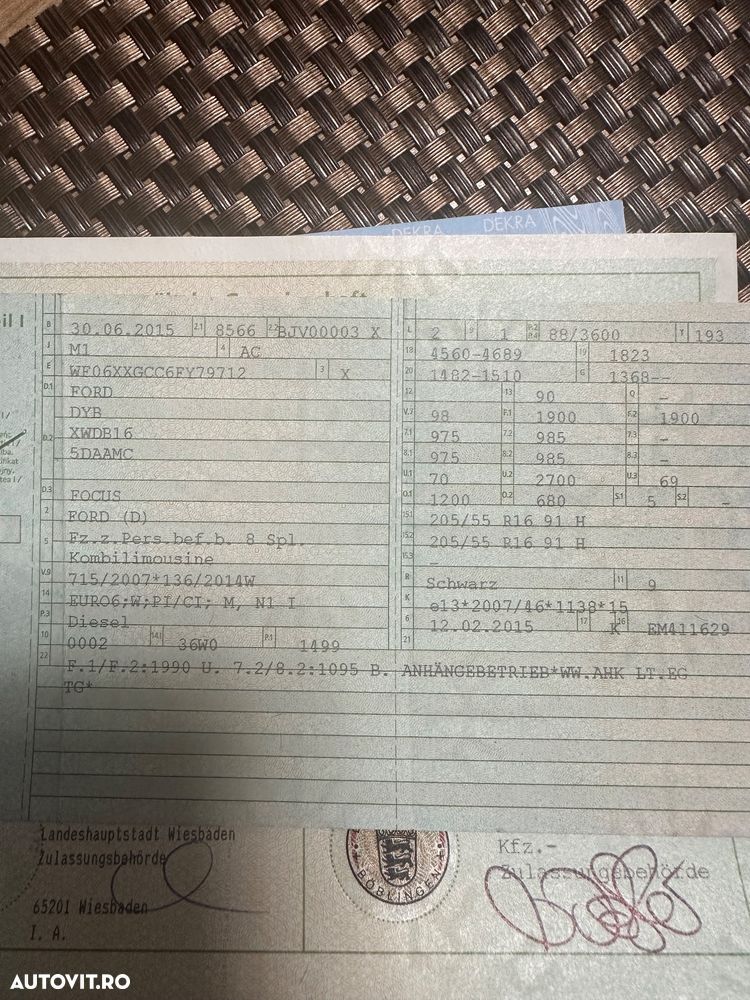 DEKRA DEKRA
B 30.06.2015 2.1 8566 2.2 BJV00003 X L 2 9 1 P.2 P.4 88/3600 T 193
J M1 4 AC 18 4560-4689 19 1823
E WF06XXGCC6FY79712 3 X 20 1482-1510 G 1368--
D.1 FORD 12 13 90 Q -
DYB V.7 98 F.1 1900 F.2 1900
D.2 XWDB16 7.1 975 7.2 985 7.3 -
5DAAMC 8.1 975 8.2 985 8.3 -
U.1 70 U.2 2700 U.3 69
D.3 FOCUS O.1 1200 O.2 680 S.1 5 S.2 -
2 FORD (D) 15.1 205/55 R16 91 H
5 Fz.z.Pers.bef.b. 8 Spl. 15.2 205/55 R16 91 H
Kombilimousine 15.3 -
V.9 715/2007*136/2014W R Schwarz 11 9
14 EURO6;W;PI/CI; M, N1 I K e13*2007/46*1138*15
P.3 Diesel 6 12.02.2015 17 K 16 EM411629
10 0002 14.1 36W0 P.1 1499 21
22 F.1/F.2:1990 U. 7.2/8.2:1095 B. ANHÄNGEBETRIEB*WW.AHK LT.EG
TG*
Landeshauptstadt Wiesbaden
Zulassungsbehörde
65201 Wiesbaden
I. A.
BÖBLINGEN
Kfz.-
Zulassungsbehörde
AUTOVIT.RO